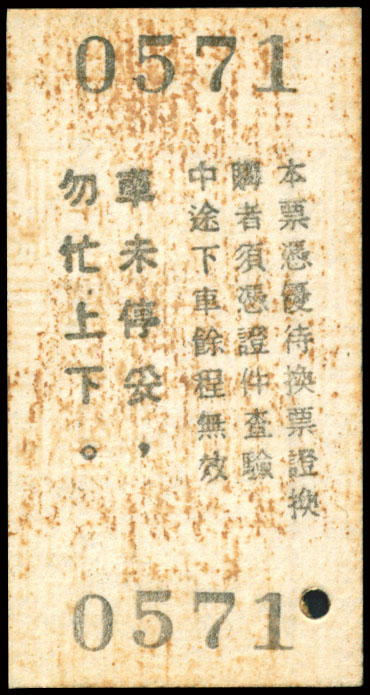 0571
本票憑優待換票證換
購者須憑證件查驗
中途下車餘程無效
車未停妥，
勿忙上下。
0571